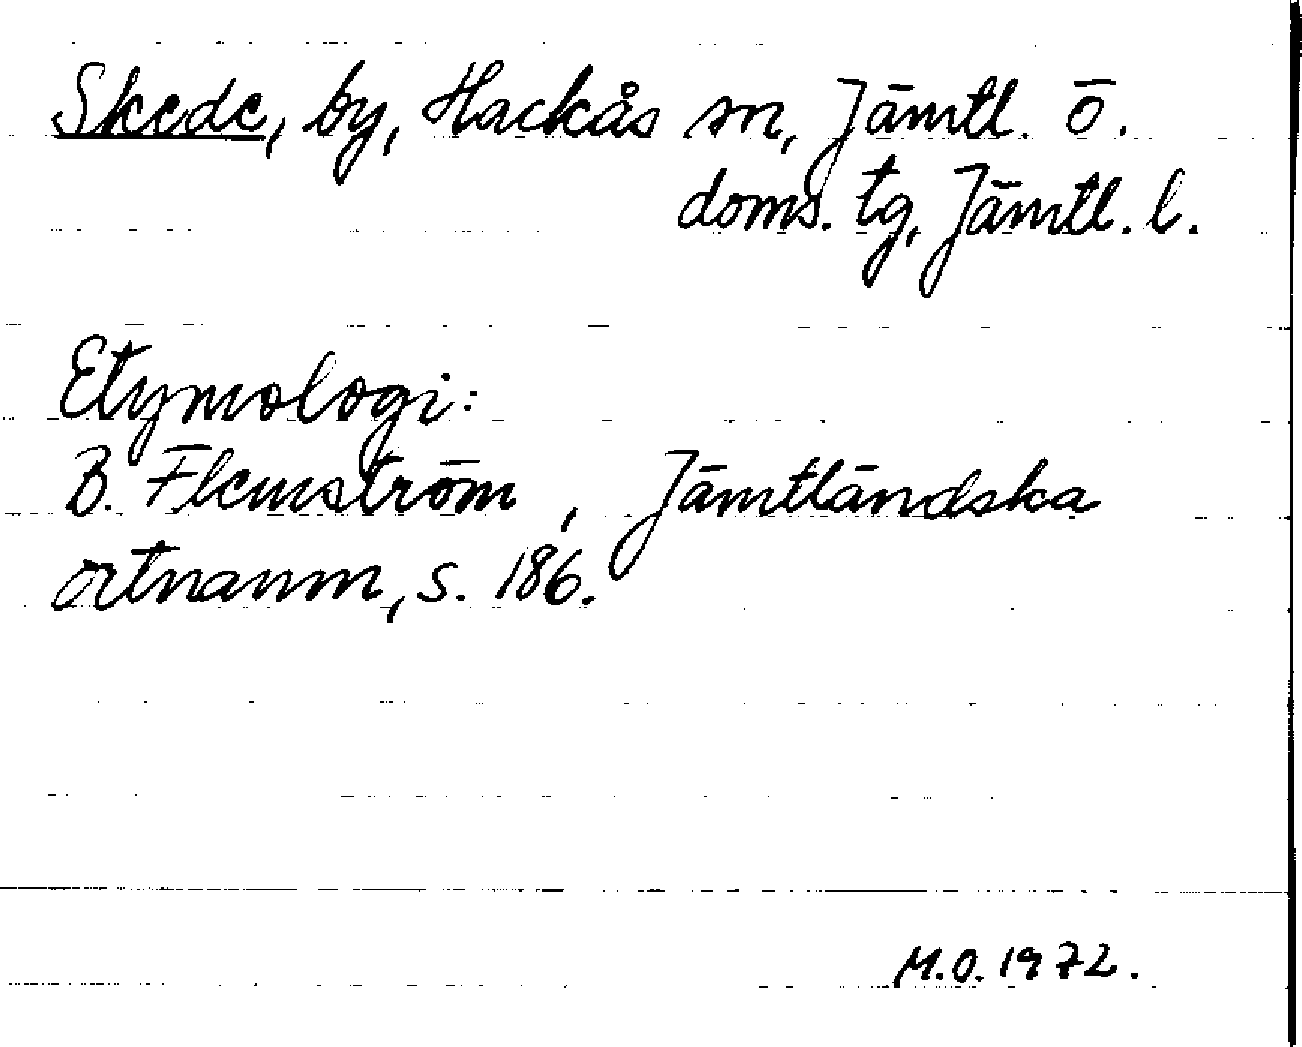 Skede, by, Hackås sn, Jämtl. ö.
doms. tg, Jämtl. l.
Etymologi:
B. Flemström, Jämtländska
ortnamn, s. 186.
M.O. 1972.